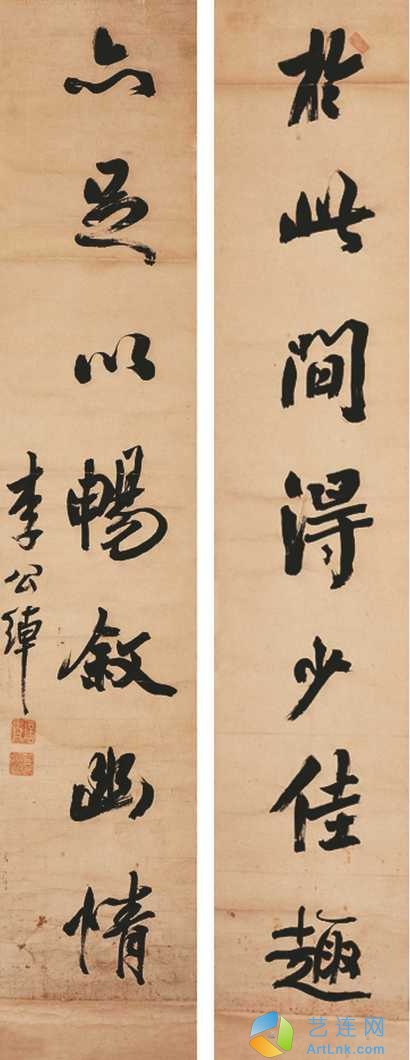 於此間得少佳趣
亦足以暢敘幽情
李公綽
艺连网
ArtLnk.com